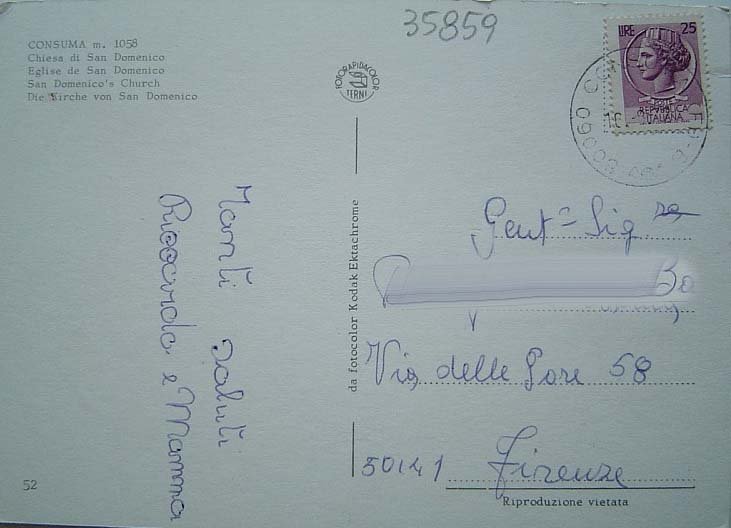 CONSUMA m. 1058
Chiesa di San Domenico
Eglise de San Domenico
San Domenico's Church
Die Kirche von San Domenico
35859
FOTORAPIDACOLOR
TERNI
LIRE 25
REPVBBLICA
ITALIANA
50060
Manti saluti
Riccardo e Mamma
da fotocolor Kodak Ektachrome
Gent= Sig ra
Via delle Gore 58
50141 Firenze
52
Riproduzione vietata